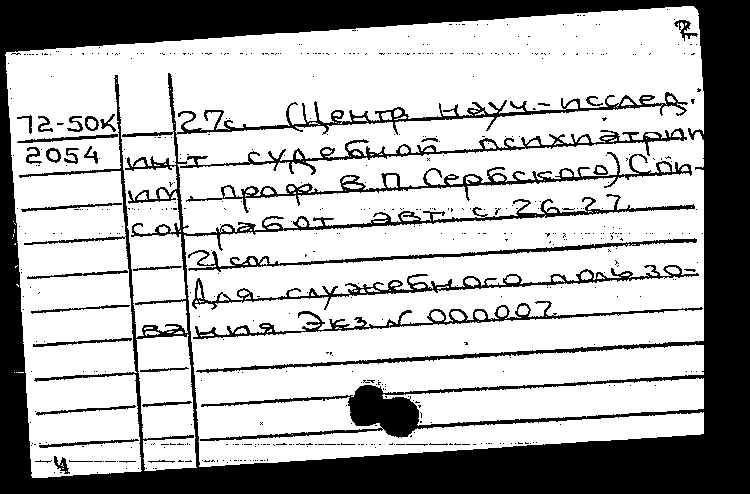 72-50К 27с. (Центр науч.-исслед.
2054 ин-т судебной психиатрии
им. проф. В.П. Сербского). Спи-
сок работ авт. с. 26-27.
21 cm.
Для служебного пользо-
вания Экз. N 000007.